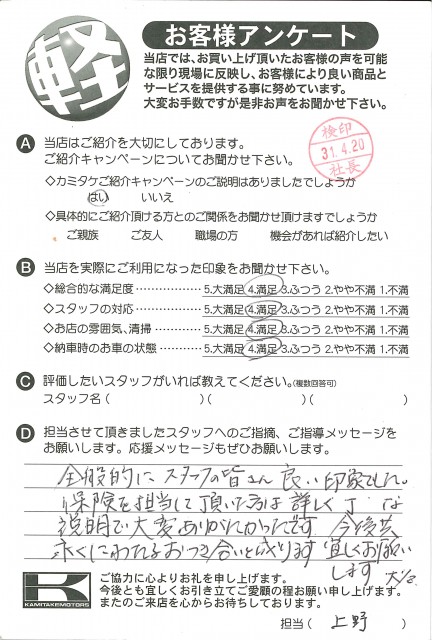 軽
お客様アンケート
当店では、お買い上げ頂いたお客様の声を可能
な限り現場に反映し、お客様により良い商品と
サービスを提供する事に努めています。
大変お手数ですが是非お声をお聞かせ下さい。
検印
31.4.20
社長
A 当店はご紹介を大切にしております。
ご紹介キャンペーンについてお聞かせ下さい。
◇カミタケご紹介キャンペーンのご説明はありましたでしょうか
はい いいえ
◇具体的にご紹介頂ける方とのご関係をお聞かせ頂けますでしょうか
ご親族 ご友人 職場の方 機会があれば紹介したい
B 当店を実際にご利用になった印象をお聞かせ下さい。
◇総合的な満足度 ……………… 5.大満足 4.満足 3.ふつう 2.やや不満 1.不満
◇スタッフの対応 ……………… 5.大満足 4.満足 3.ふつう 2.やや不満 1.不満
◇お店の雰囲気、清掃 ………… 5.大満足 4.満足 3.ふつう 2.やや不満 1.不満
◇納車時のお車の状態 ………… 5.大満足 4.満足 3.ふつう 2.やや不満 1.不満
C 評価したいスタッフがいれば教えてください。(複数回答可)
スタッフ名( )( )( )
D 担当させて頂きましたスタッフへのご指摘、ご指導メッセージを
お願いします。応援メッセージもぜひお願いします。
全般的に スタッフの皆さん 良い印象でした。
保険を担当して頂いた方は 詳しく丁 な
説明で大変ありがたかったです 今後共
永くにわたるおつき合いと成ります 宜しくお願い
します
K
KAMITAKEMOTORS
ご協力に心よりお礼を申し上げます。
今後とも宜しくお引き立てご愛顧の程お願い申し上げます。
またのご来店を心からお待ちしております。
担当( 上野 )